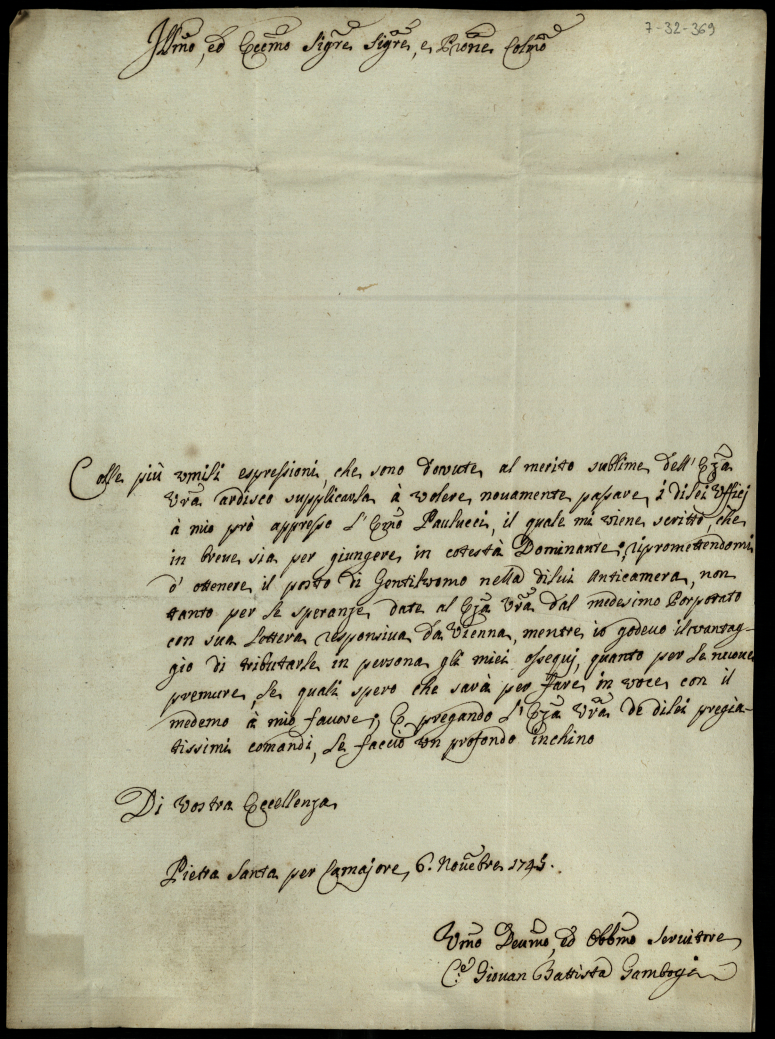 7-32-369
Ill̃mo, ed Ecc̃mo Sig̃re Sig̃re, e Pr̃one Col̃mo
Colle più umili espressioni, che sono dovute al merito sublime dell' Ecc̃za
Vr̃a ardisco supplicarla à volere novamente passare i dilei Uffici
à mio prò appresso l' Em̃o Paulucci, il quale mi viene scritto, che
in breve sia per giungere in cotestà Dominante; ripromettendomi
d' ottenere il posto di Gentiluomo nella dilui Anticamera, non
tanto per le speranze date al Ecc̃za Vr̃a dal medesimo Porporato
con sua lettera responsiva da Vienna, mentre io godevo il vantag-
gio di tributarle in persona gli miei ossequj, quanto per le nuove
premure, le quali spero che sarà per fare in voce con il
medemo à mio favore; E pregando l' Ecc̃za Vr̃a de dilei pregia-
tissimi comandi, le faccio un profondo inchino
Di Vostra Eccellenza
Pietra Santa per Camajore 6. Noṽebre 1745.
Um̃o Deṽmo, ed Obb̃mo Servitore
C.e Giovan Battista Gambogi